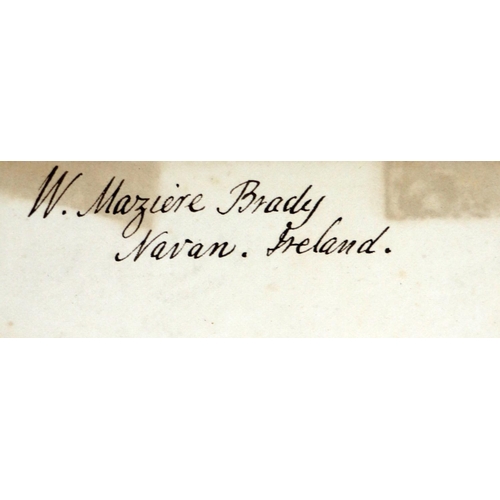 W. Mazière Brady
Navan. Ireland.